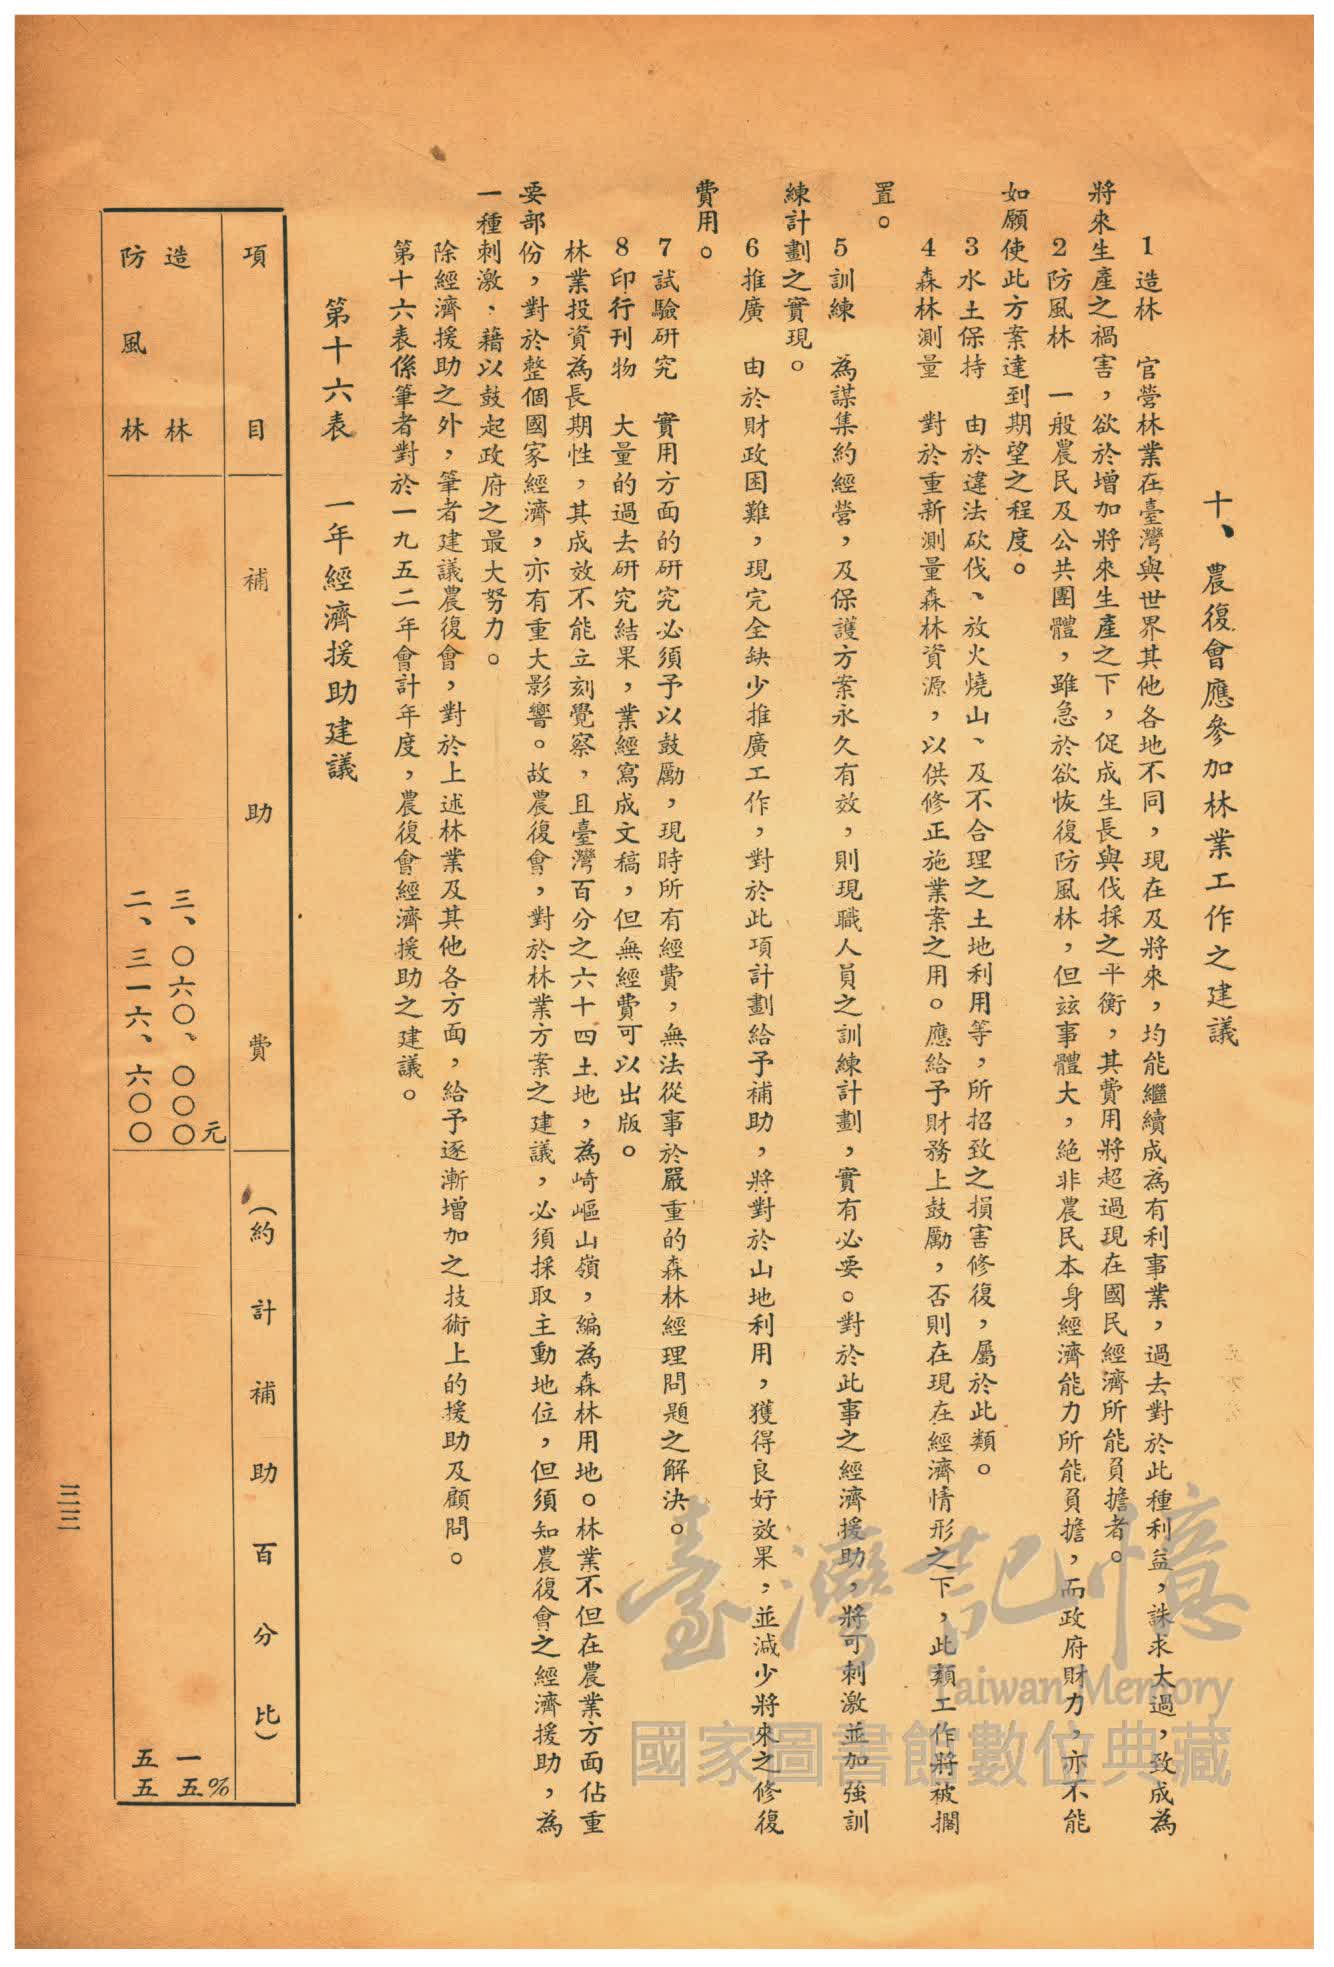 十、農復會應參加林業工作之建議
1 造林　官營林業在臺灣與世界其他各地不同，現在及將來，均能繼續成為有利事業，過去對於此種利益，誅求太過，致成為
將來生產之禍害，欲於增加將來生產之下，促成生長與伐採之平衡，其費用將超過現在國民經濟所能負擔者。
2 防風林　一般農民及公共團體，雖急於欲恢復防風林，但茲事體大，絕非農民本身經濟能力所能負擔，而政府財力，亦不能
如願使此方案達到期望之程度。
3 水土保持　由於違法砍伐、放火燒山、及不合理之土地利用等，所招致之損害修復，屬於此類。
4 森林測量　對於重新測量森林資源，以供修正施業案之用。應給予財務上鼓勵，否則在現在經濟情形之下，此類工作將被擱
置。
5 訓練　為謀集約經營，及保護方案永久有效，則現職人員之訓練計劃，實有必要。對於此事之經濟援助，將可刺激並加強訓
練計劃之實現。
6 推廣　由於財政困難，現完全缺少推廣工作，對於此項計劃給予補助，將對於山地利用，獲得良好效果，並減少將來之修復
費用。
7 試驗研究　實用方面的研究必須予以鼓勵，現時所有經費，無法從事於嚴重的森林經理問題之解決。
8 印行刊物　大量的過去研究結果，業經寫成文稿，但無經費可以出版。
林業投資為長期性，其成效不能立刻覺察，且臺灣百分之六十四土地，為崎嶇山嶺，編為森林用地。林業不但在農業方面佔重
要部份，對於整個國家經濟，亦有重大影響。故農復會，對於林業方案之建議，必須採取主動地位，但須知農復會之經濟援助，為
一種刺激，藉以鼓起政府之最大努力。
除經濟援助之外，筆者建議農復會，對於上述林業及其他各方面，給予逐漸增加之技術上的援助及顧問。
第十六表係筆者對於一九五二年會計年度，農復會經濟援助之建議。
第十六表　一年經濟援助建議
項目　補助費　（約計補助百分比）
造林　三、〇六〇、〇〇〇元　一五％
防風林　二、三一六、六〇〇　五五
三三
臺灣記憶
Taiwan Memory
國家圖書館數位典藏